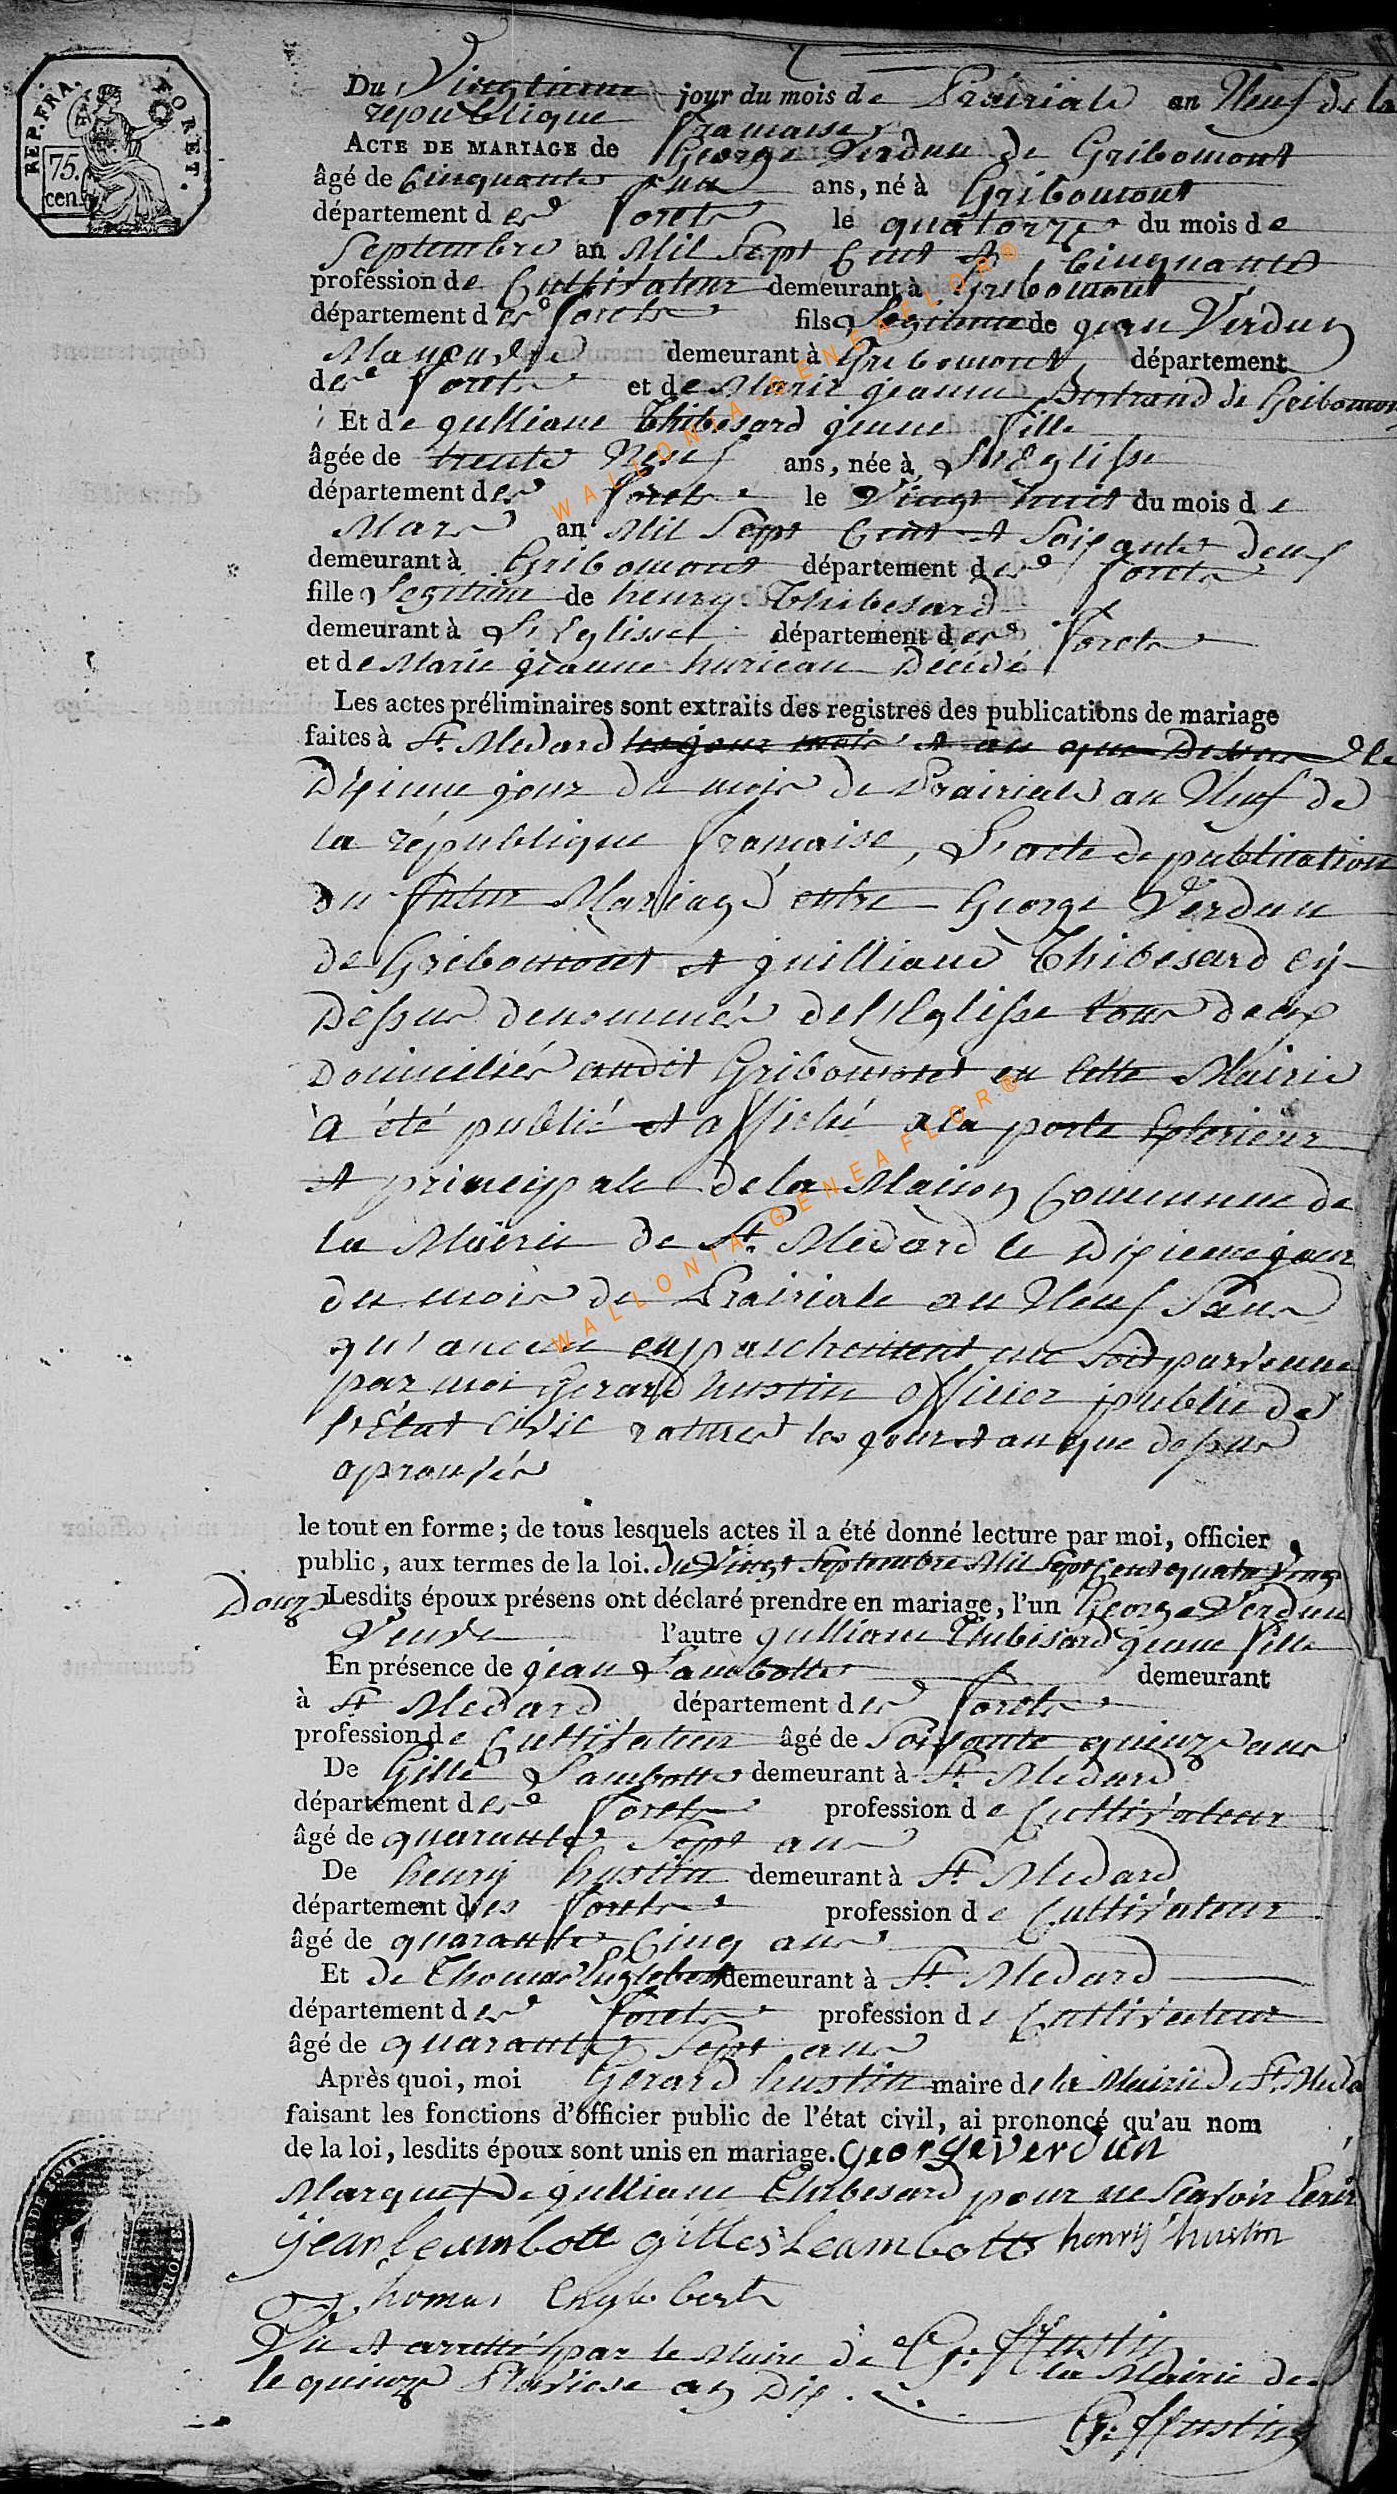 REP. FRA. FORET.
75. cen.
Du Vingtieme jour du mois de Prairiale an Neuf de la
republique francaise
ACTE DE MARIAGE de George Verdun de Gribomont
âgé de Cinquante un ans, né à Gribomont
département des forets le quatorze du mois de
Septembre an Mil Sept Cent et Cinquante
profession de Cultivateur demeurant à Gribomont
département des forets fils Legitime de jean Verdun
demeurant à Gribomont département
des forets et de Marie jeanne Bertrand de Gribomont
Et de gulliane Thibesard jeune fille
âgée de trente Neuf ans, née à L'Eglisse
département des forets le Vingt huit du mois de
Mars an Mil Sept Cent et Soixante deux
demeurant à Gribomont département des forets
fille Legitime de henry Thibesard
demeurant à L'Eglisse département des forets
et de Marie jeanne hurieau Décédé
Les actes préliminaires sont extraits des registres des publications de mariage
faites à St. Medard les jour mois et an que Dessus le
Dixieme jour du mois de Prairiale an Neuf de
la république francaise, L'acte de publication
du futur Mariage entre George Verdun
de Gribomont et guilliane Thibesard cy-
Dessus denommés de l'Eglisse tous deux
Domiciliés audit Gribomont en cette Mairie
à été publié et affiché a la porte Exterieur
et principale de la Maison Commune de
la Mairie de St. Medard le Dixieme jour
du mois de Prairiale an Neuf Sans
qu'aucun enpaichement me soit parvenue
par moi Gerard hustin officier public de
l'Etat Civil ratures les jour et an que dessus
aprouvés
le tout en forme ; de tous lesquels actes il a été donné lecture par moi, officier
public, aux termes de la loi. du Vingt Septembre Mil Sept Cent quatre Vingt
Douze Lesdits époux présens ont déclaré prendre en mariage, l'un George Verdun
Veuve l'autre gulliane Thibesard jeune fille
En présence de jean Lambotte demeurant
à St Medard département des forets
profession de Cultivateur âgé de Soixante quinze ans
De Gille Lambotte demeurant à St. Medard
département des forets profession de Cultivateur
âgé de quarante Sept ans
De henry hustin demeurant à St. Medard
département des forets profession de Cultivateur
âgé de quarante Cinq ans
Et de Thomas Englebert demeurant à St. Medard
département des forets profession de Cultivateur
âgé de quarante Sept ans
Après quoi, moi Gerard hustin maire de la Mairie de St. Meda
faisant les fonctions d'officier public de l'état civil, ai prononcé qu'au nom
de la loi, lesdits époux sont unis en mariage. George Verdun
Marque de gulliane Thibesard pour ne Scavoir Ecrir
jean leambott gilles Leambotte henrÿ hustin
Thomas Englebert
G: Hustin
Vu et arretté par le Maire de la Mairie de
le quinze Pluviose an Dix.
G: Hustin
WALLONIA-GENEAFLOR®
WALLONIA-GENEAFLOR®